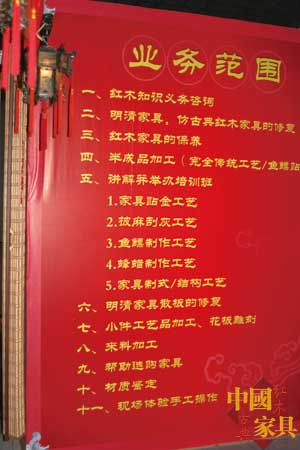 业务范围
一、红木知识义务咨询
二、明清家具，仿古典红木家具的修复
三、红木家具的保养
四、半成品加工（完全传统工艺/鱼鳔贴
五、讲解并举办培训班
1.家具贴金工艺
2.披麻刮灰工艺
3.鱼鳔制作工艺
4.蜂蜡制作工艺
5.家具制式/结构工艺
六、明清家具散板的修复
七、小件工艺品加工、花板雕刻
八、来料加工
九、帮助选购家具
十、材质鉴定
十一、现场体验手工操作
中國
家具
红木
古典